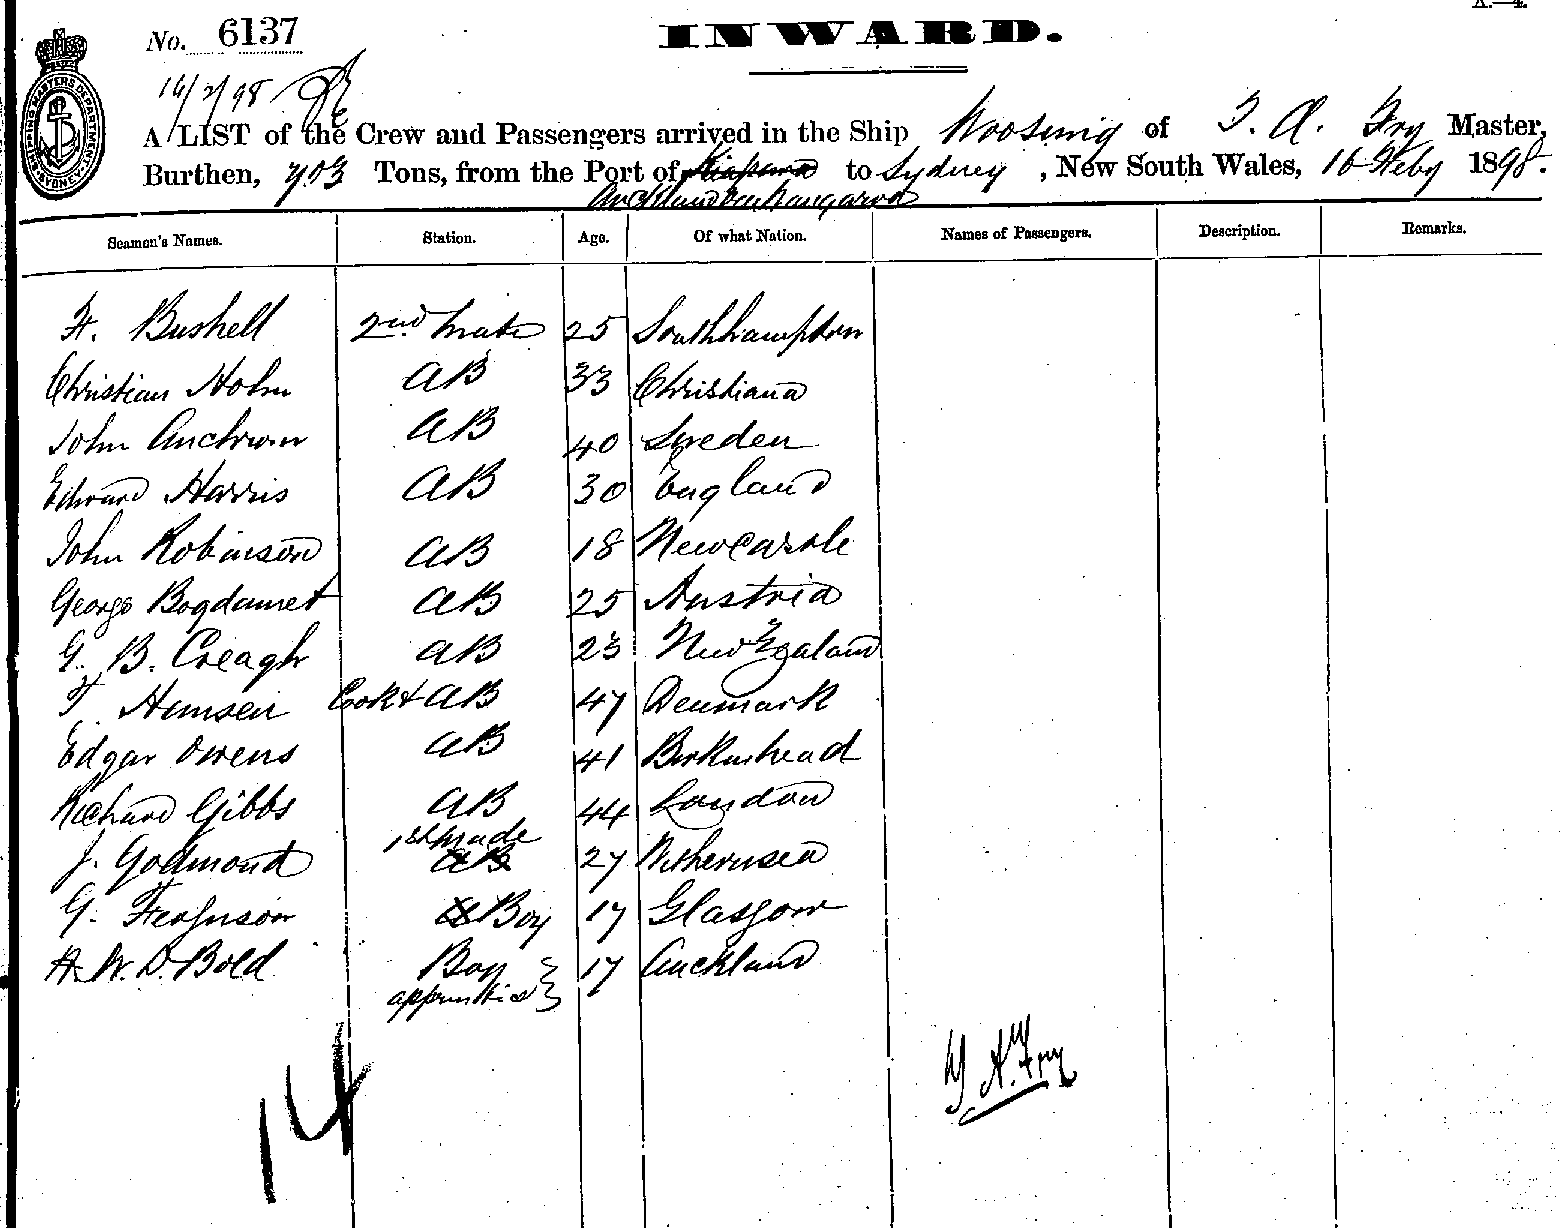 A.—4.
No. 6137
INWARD.
16/2/98
A LIST of the Crew and Passengers arrived in the Ship Woosung of T. A. Fry Master,
Burthen, 703 Tons, from the Port of to Sydney, New South Wales, 16 Feby 1898.
Auckland via Kaipara
Seamen's Names. Station. Age. Of what Nation. Names of Passengers. Description. Remarks.
H. Bushell 2nd Mate 25 Southhampton
Christian Holm AB 33 Christiana
John AB 40 Sweden
Edward Harris AB 30 England
John Robinson AB 18 Newcastle
George AB 25 Austria
G. B. Creagh AB 23 New Zealand
F. Hansen Cook & AB 47 Denmark
Edgar Owens AB 41 Birkenhead
Richard Gibbs AB 44 London
J. Godmond 1st Made AB 27 Withernsea
G. Ferguson Boy 17 Glasgow
A. W. D. Bold Boy 17 Auckland
apprentice
A. Fry
14